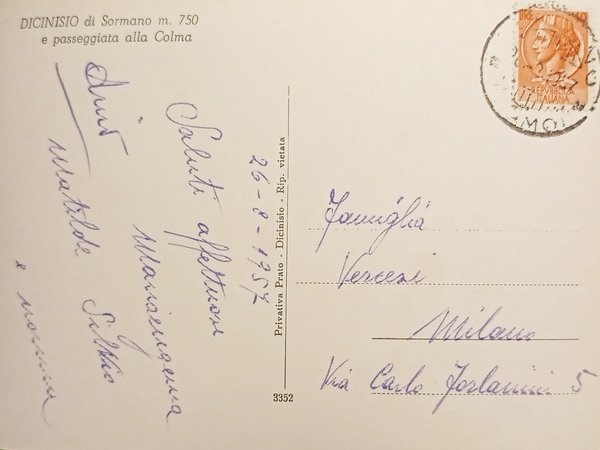 DICINISIO di Sormano m. 750
e passeggiata alla Colma
26-8-1957
Saluti affettuosi
Mariaeugenia
Matilde Silvio
e mamma
Privativa Prato - Dicinisio - Rip. vietata
3352
LIRE
REPUBBLICA
ITALIANA
Famiglia
Vercesi
Milano
Via Carlo Forlanini 5